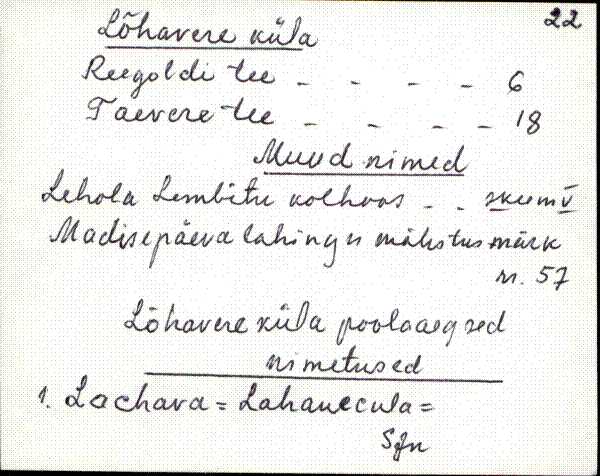 22
Lõhavere küla
Reegoldi tee - - - - 6
Taevere tee - - - - 18
Muud nimed
Lehola Lembitu kolhoos - -
Madisepäeva lahingu mälestusmärk
nr. 57
Lõhavere küla poolaaegsed
nimetused
1. Lachava = Lahanecula =